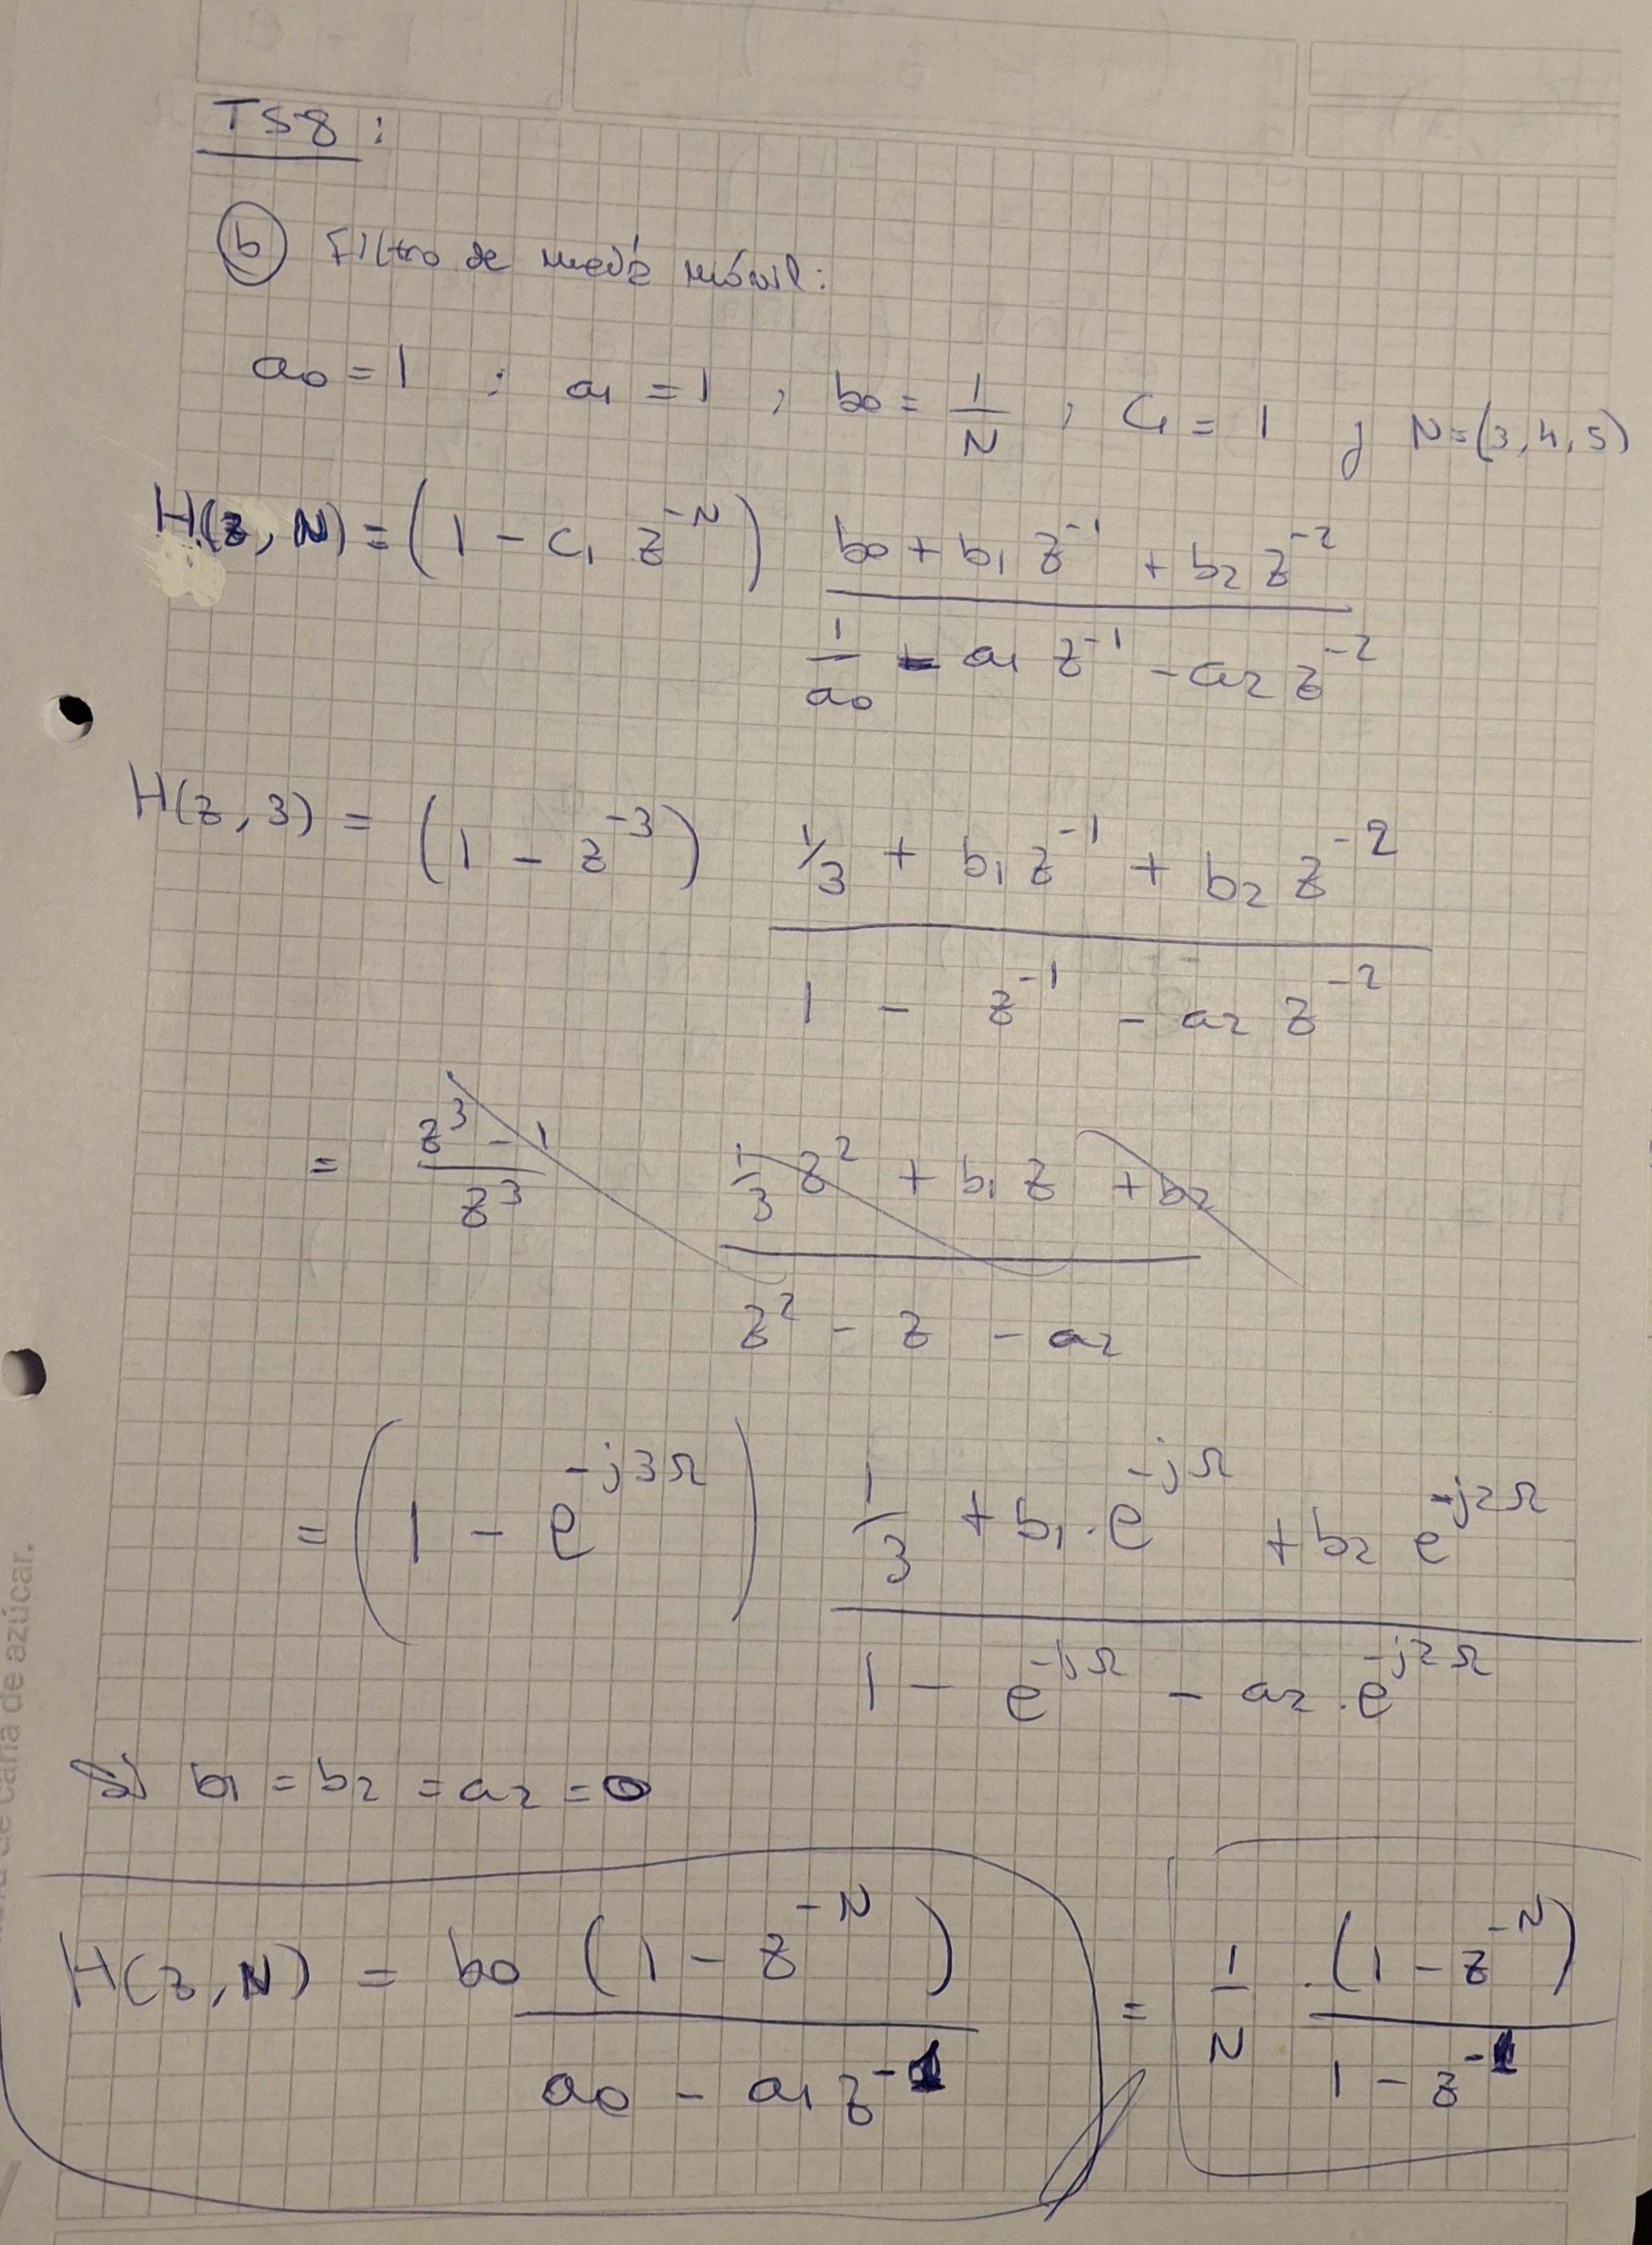 TS8:
b) Filtro de media móvil:
a0 = 1 ; a1 = 1 ; b0 = 1/N ; C1 = 1 y N=(3,4,5)
H(z, N) = (1 - c1 z^-N) (b0 + b1 z^-1 + b2 z^-2) / (1/a0 - a1 z^-1 - a2 z^-2)
H(z, 3) = (1 - z^-3) (1/3 + b1 z^-1 + b2 z^-2) / (1 - z^-1 - a2 z^-2)
= (z^3 - 1)/z^3 (1/3 z^2 + b1 z + b2) / (z^2 - z - a2)
= (1 - e^-j3Ω) (1/3 + b1 . e^-jΩ + b2 e^-j2Ω) / (1 - e^-jΩ - a2 . e^-j2Ω)
Si b1 = b2 = a2 = 0
H(z, N) = b0 (1 - z^-N) / (a0 - a1 z^-1) = 1/N . (1 - z^-N) / (1 - z^-1)
de caña de azúcar.